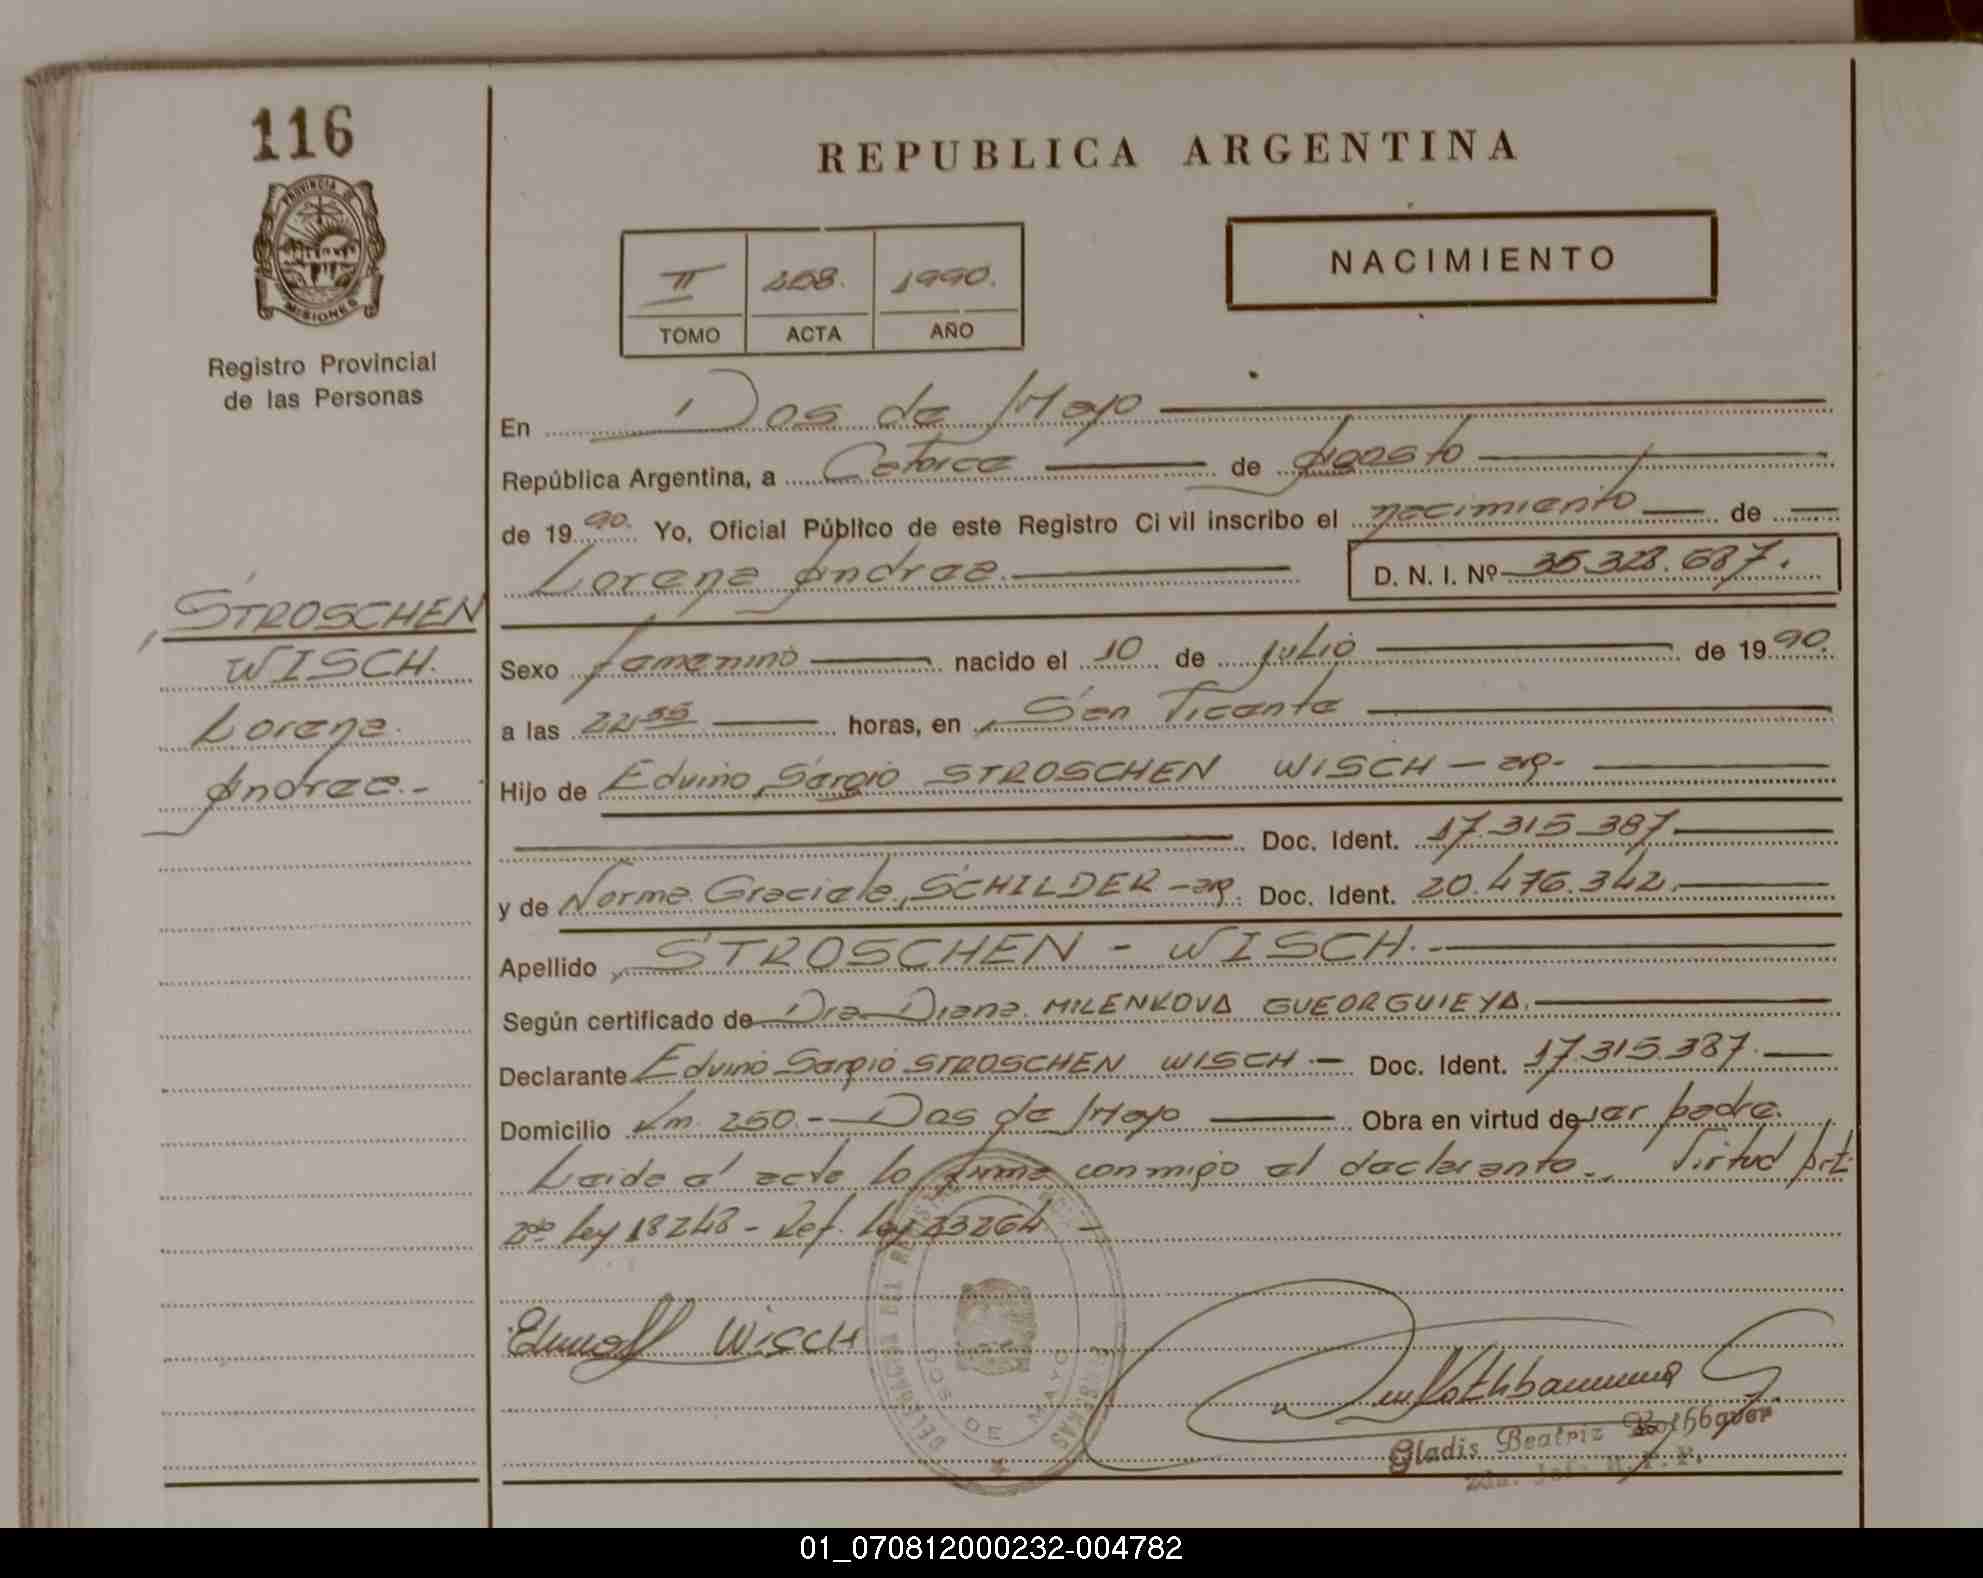 116
PROVINCIA DE
MISIONES
Registro Provincial
de las Personas
STROSCHEN
WISCH.
Lorena
Andrea.-
REPUBLICA ARGENTINA
NACIMIENTO
II 258. 1990.
TOMO ACTA AÑO
En Dos de Mayo
República Argentina, a Catorce de Agosto
de 1990. Yo, Oficial Público de este Registro Civil inscribo el nacimiento de
Lorena Andrea. D. N. I. Nº 35.328.687.
Sexo femenino nacido el 10 de julio de 1990.
a las 22,55 horas, en San Vicente
Hijo de Edvino Sergio STROSCHEN WISCH - arg-
Doc. Ident. 17.315.387
y de Norma Graciela, SCHILDER - arg. Doc. Ident. 20.476.342.
Apellido STROSCHEN - WISCH.-
Según certificado de Dra Diana MILENKOVA GUEORGUIEVA.
Declarante Edvino Sergio STROSCHEN WISCH.- Doc. Ident. 17.315.387.
Domicilio Km. 250.- Dos de Mayo Obra en virtud de ser padre.
Leida el acta la firma conmigo el declarante. Virtud Art.
2do Ley 18248 - Ref. Ley 23264 -
WiSCH
DELEGACION DEL REGISTRO PERSONAS
DOS DE MAYO
Gladis Beatriz
01_070812000232-004782